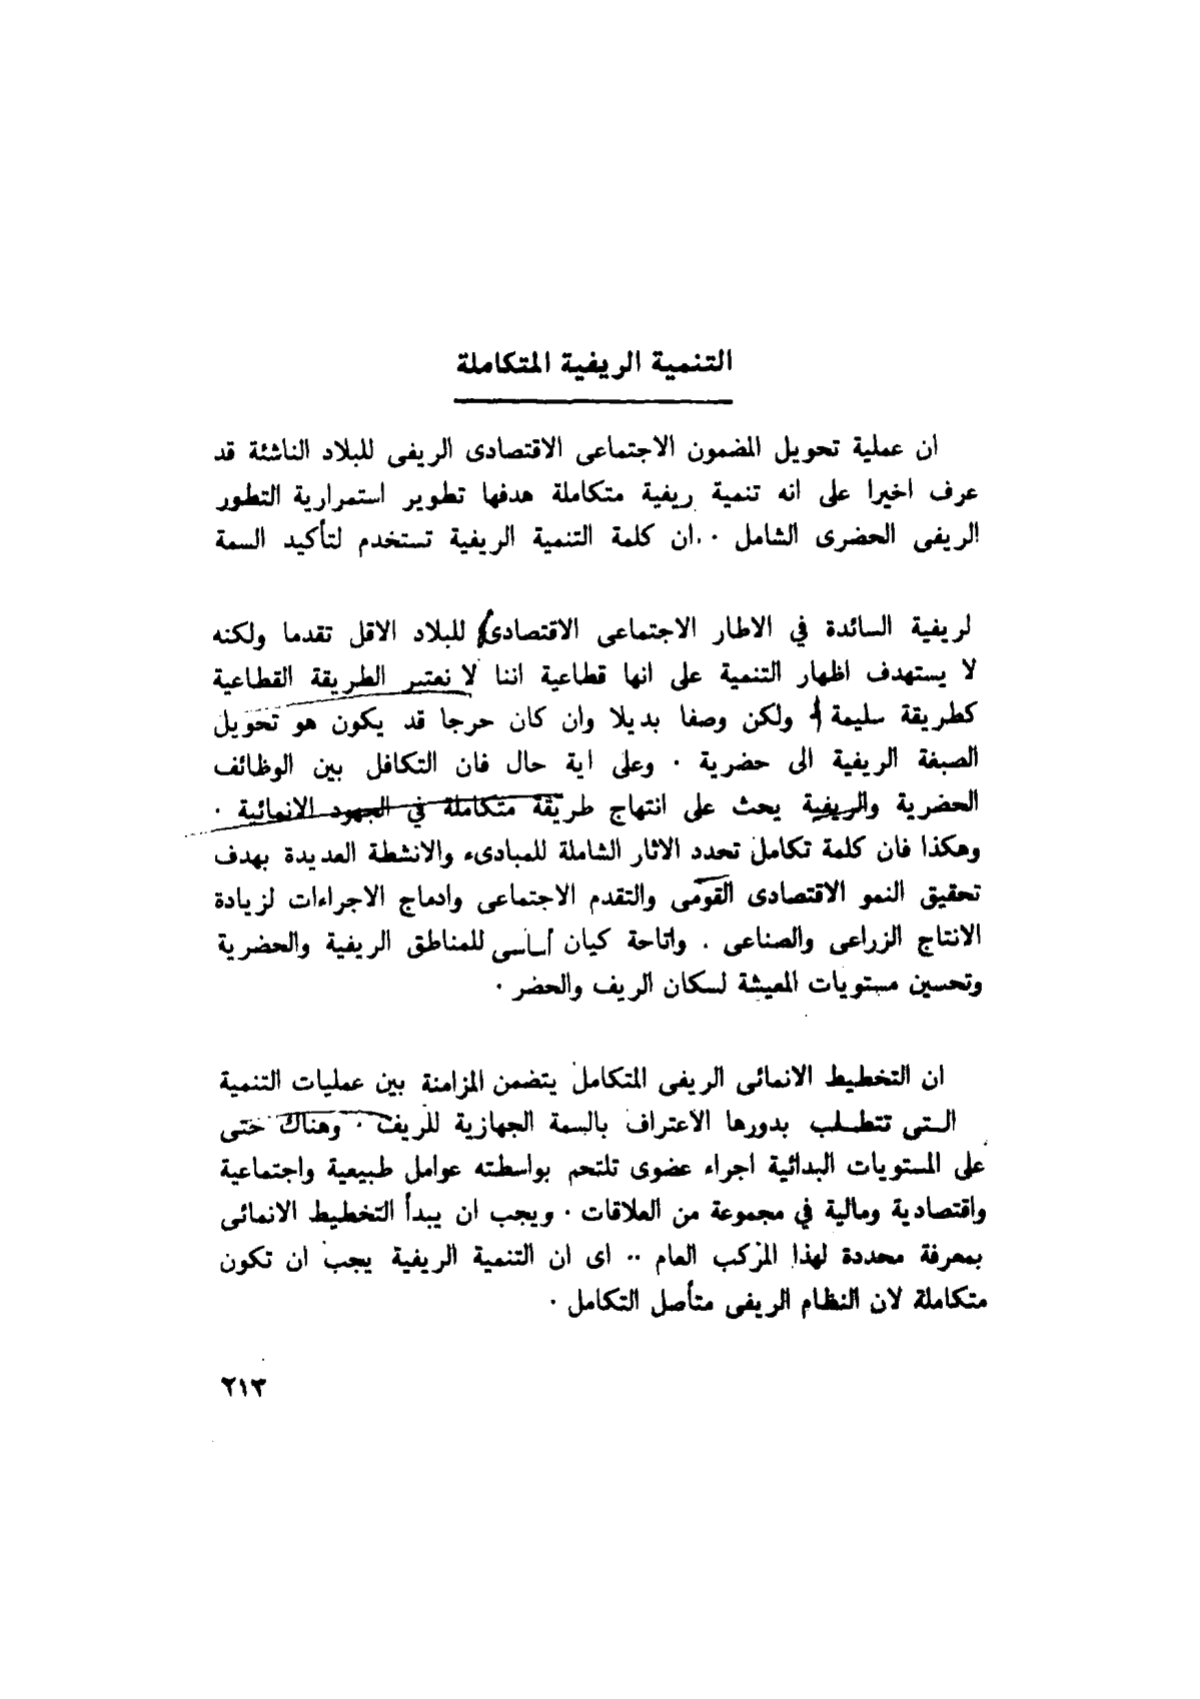 التنمية الريفية المتكاملة
ان عملية تحويل المضمون الاجتماعى الاقتصادى الريفى للبلاد الناشئة قد
عرف اخيرا على انه تنمية ريفية متكاملة هدفها تطوير استمرارية التطور
الريفى الحضرى الشامل ٠ ان كلمة التنمية الريفية تستخدم لتأكيد السمة
لريفية السائدة في الاطار الاجتماعى الاقتصادى للبلاد الاقل تقدما ولكنه
لا يستهدف اظهار التنمية على انها قطاعية اننا لا نعتبر الطريقة القطاعية
كطريقة سليمة ولكن وصفا بديلا وان كان حرجا قد يكون هو تحويل
الصبغة الريفية الى حضرية ٠ وعلى اية حال فان التكافل بين الوظائف
الحضرية والريفية يحث على انتهاج طريقة متكاملة في الجهود الانمائية ٠
وهكذا فان كلمة تكامل تحدد الاثار الشاملة للمبادىء والانشطة العديدة بهدف
تحقيق النمو الاقتصادى القومى والتقدم الاجتماعى وادماج الاجراءات لزيادة
الانتاج الزراعى والصناعى . واتاحة كيان أساسى للمناطق الريفية والحضرية
وتحسين مستويات المعيشة لسكان الريف والحضر ٠
ان التخطيط الانمائى الريفى المتكامل يتضمن المزامنة بين عمليات التنمية
التى تتطلب بدورها الاعتراف بالسمة الجهازية للريف ٠ وهناك حتى
على المستويات البدائية اجراء عضوى تلتحم بواسطته عوامل طبيعية واجتماعية
واقتصادية ومالية في مجموعة من العلاقات ٠ ويجب ان يبدأ التخطيط الانمائى
بمعرفة محددة لهذا المركب العام ٠٠ اى ان التنمية الريفية يجب ان تكون
متكاملة لان النظام الريفى متأصل التكامل ٠
٢١٣